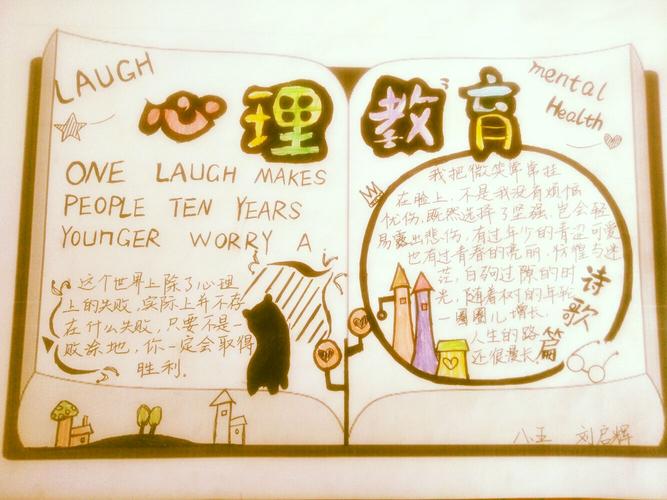 LAUGH
心理教育
mental
Health
ONE LAUGH MAKES
PEOPLE TEN YEARS
YOUNGER WORRY A
这个世界上除了心理
上的失败,实际上并不存
在什么失败,只要不是一
败涂地,你一定会取得
胜利。
我把微笑牢牢挂
在脸上,不是我没有烦恼
忧伤,既然选择了坚强,岂会轻
易露出悲伤,有过年少的青涩可爱
也有过青春的亮丽,彷惶与迷
茫,白驹过隙的时
光,随着树的年轮
一圈圈儿增长,
人生的路
还很漫长。
诗歌篇
八.五 刘启辉